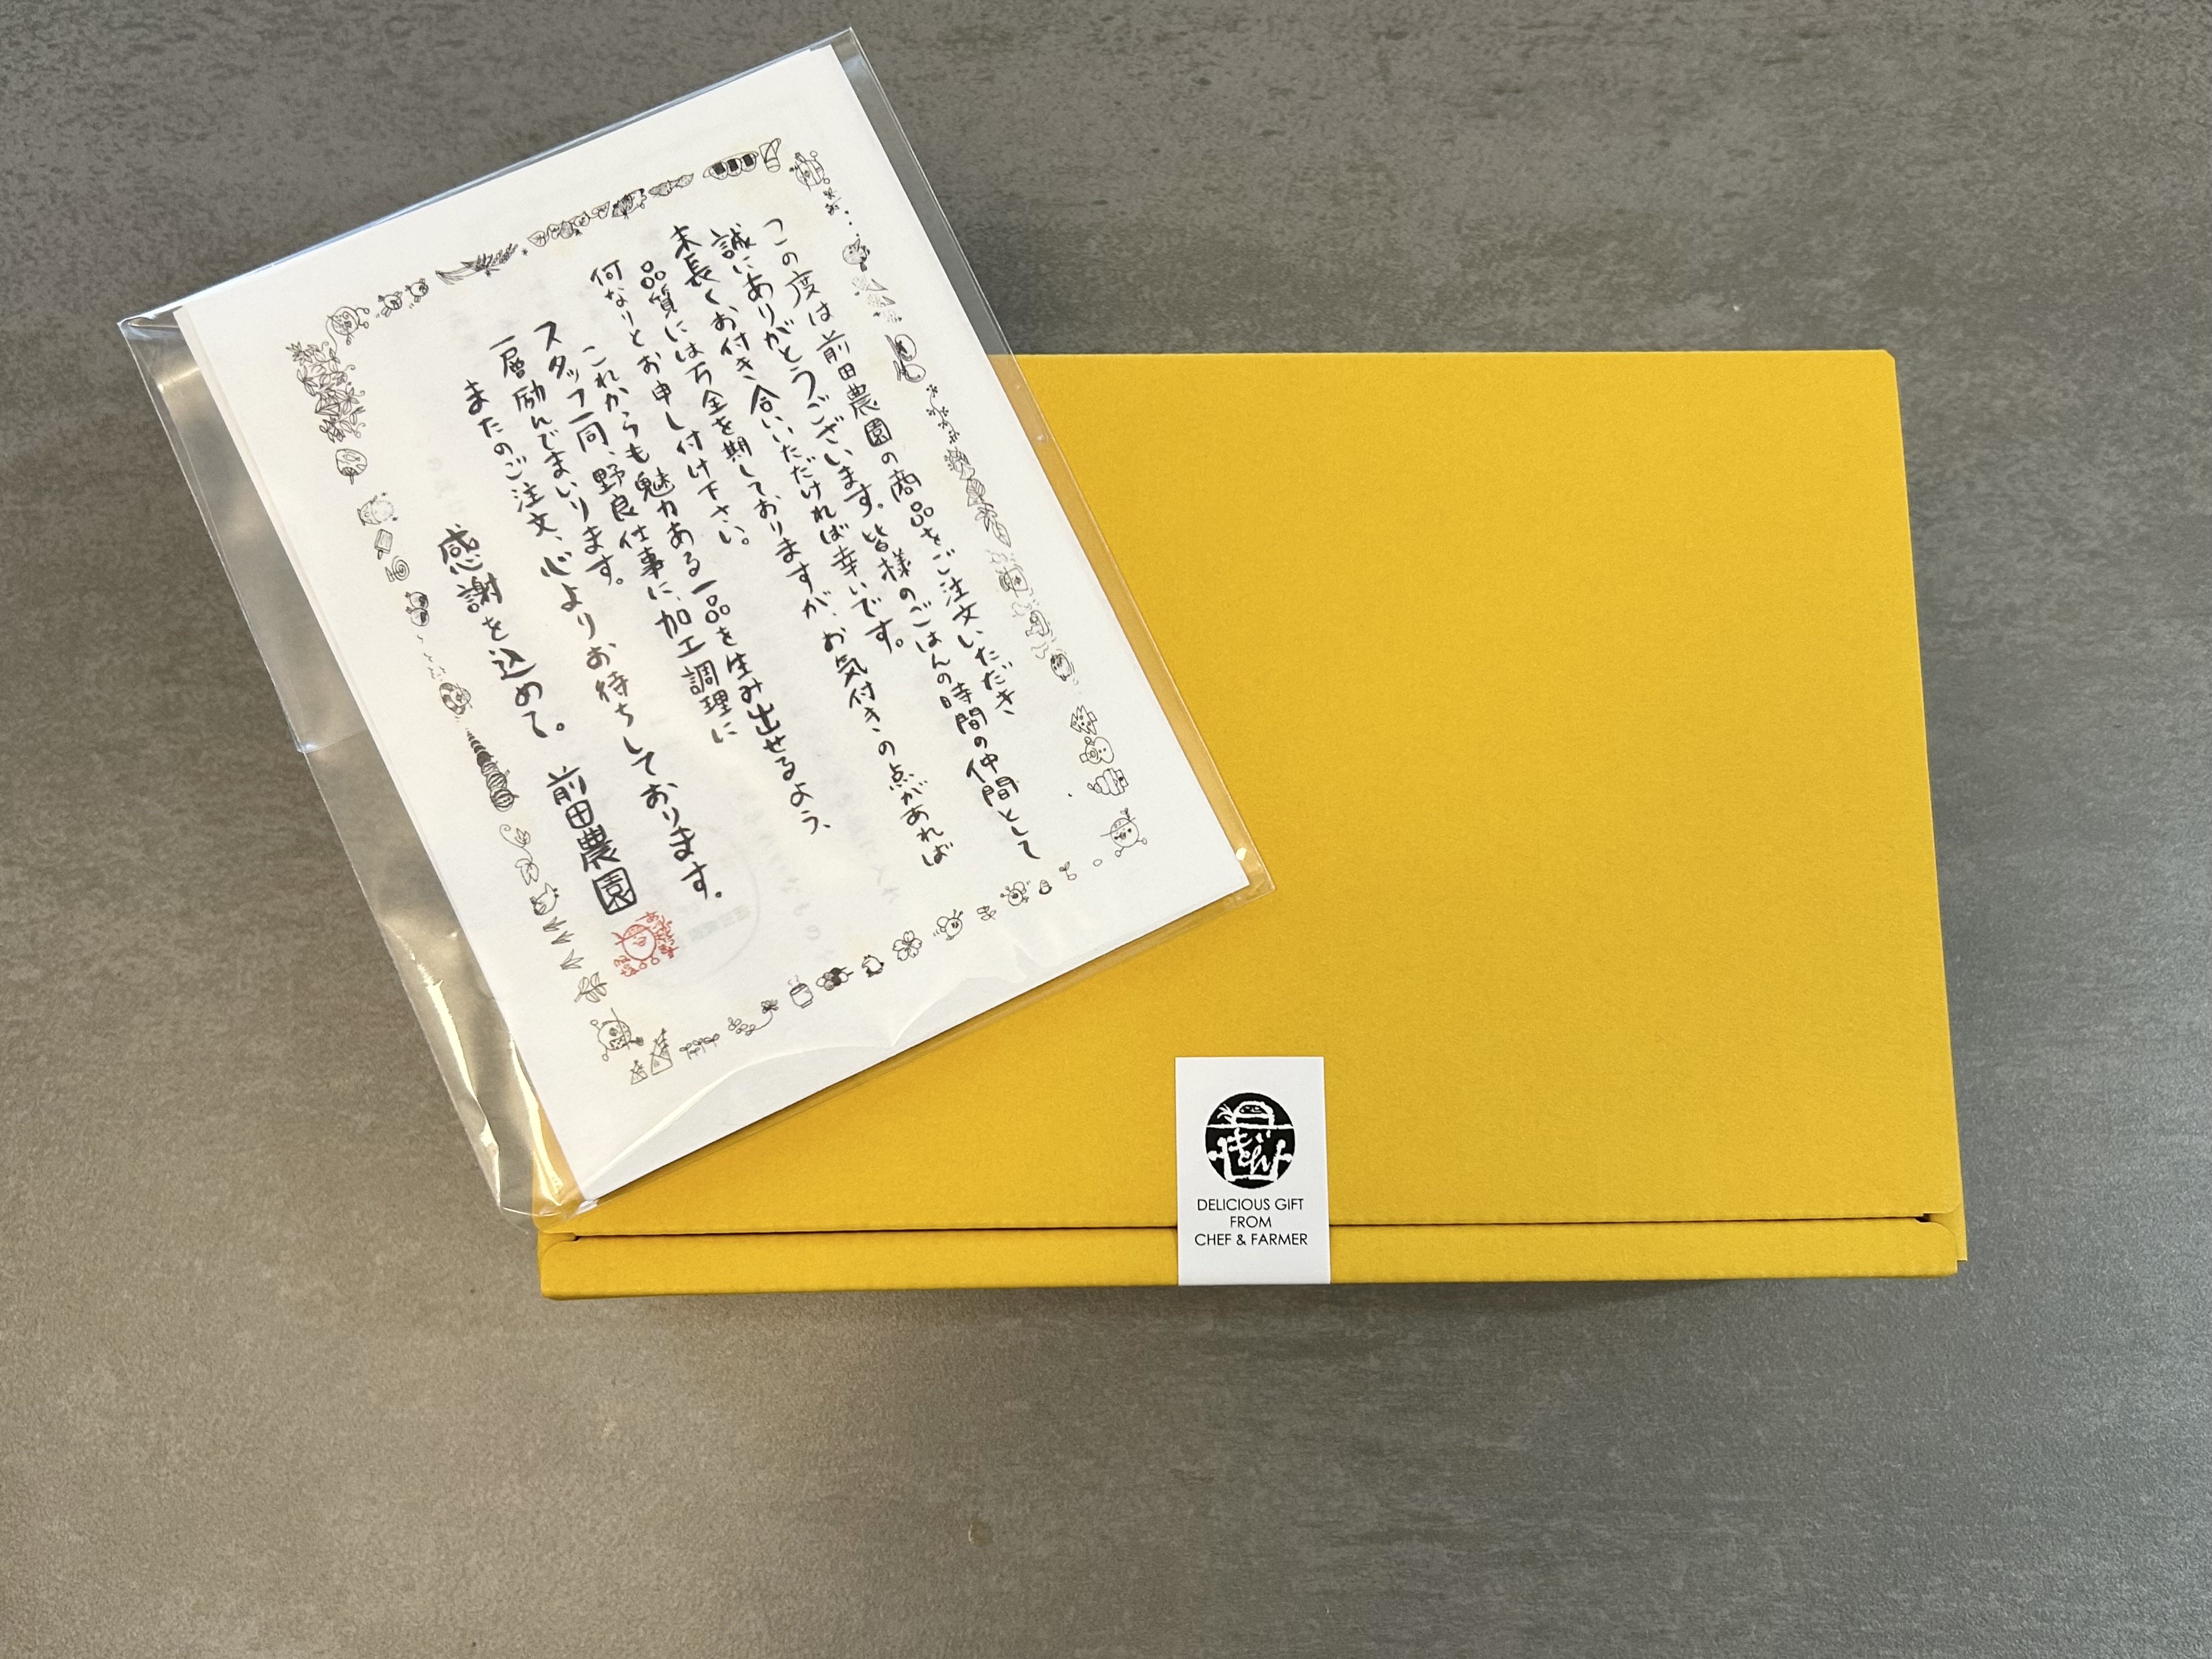 この度は前田農園の商品をご注文いただき
誠にありがとうございます。皆様のごはんの時間の仲間として
末長くお付き合いいただければ幸いです。
品質には万全を期しておりますが、お気付きの点があれば
何なりとお申し付け下さい。
これからも魅力ある一品を生み出せるよう、
スタッフ一同、野良仕事に、加工調理に
一層励んでまいります。
またのご注文、心よりお待ちしております。
感謝を込めて。 前田農園
DELICIOUS GIFT
FROM
CHEF & FARMER